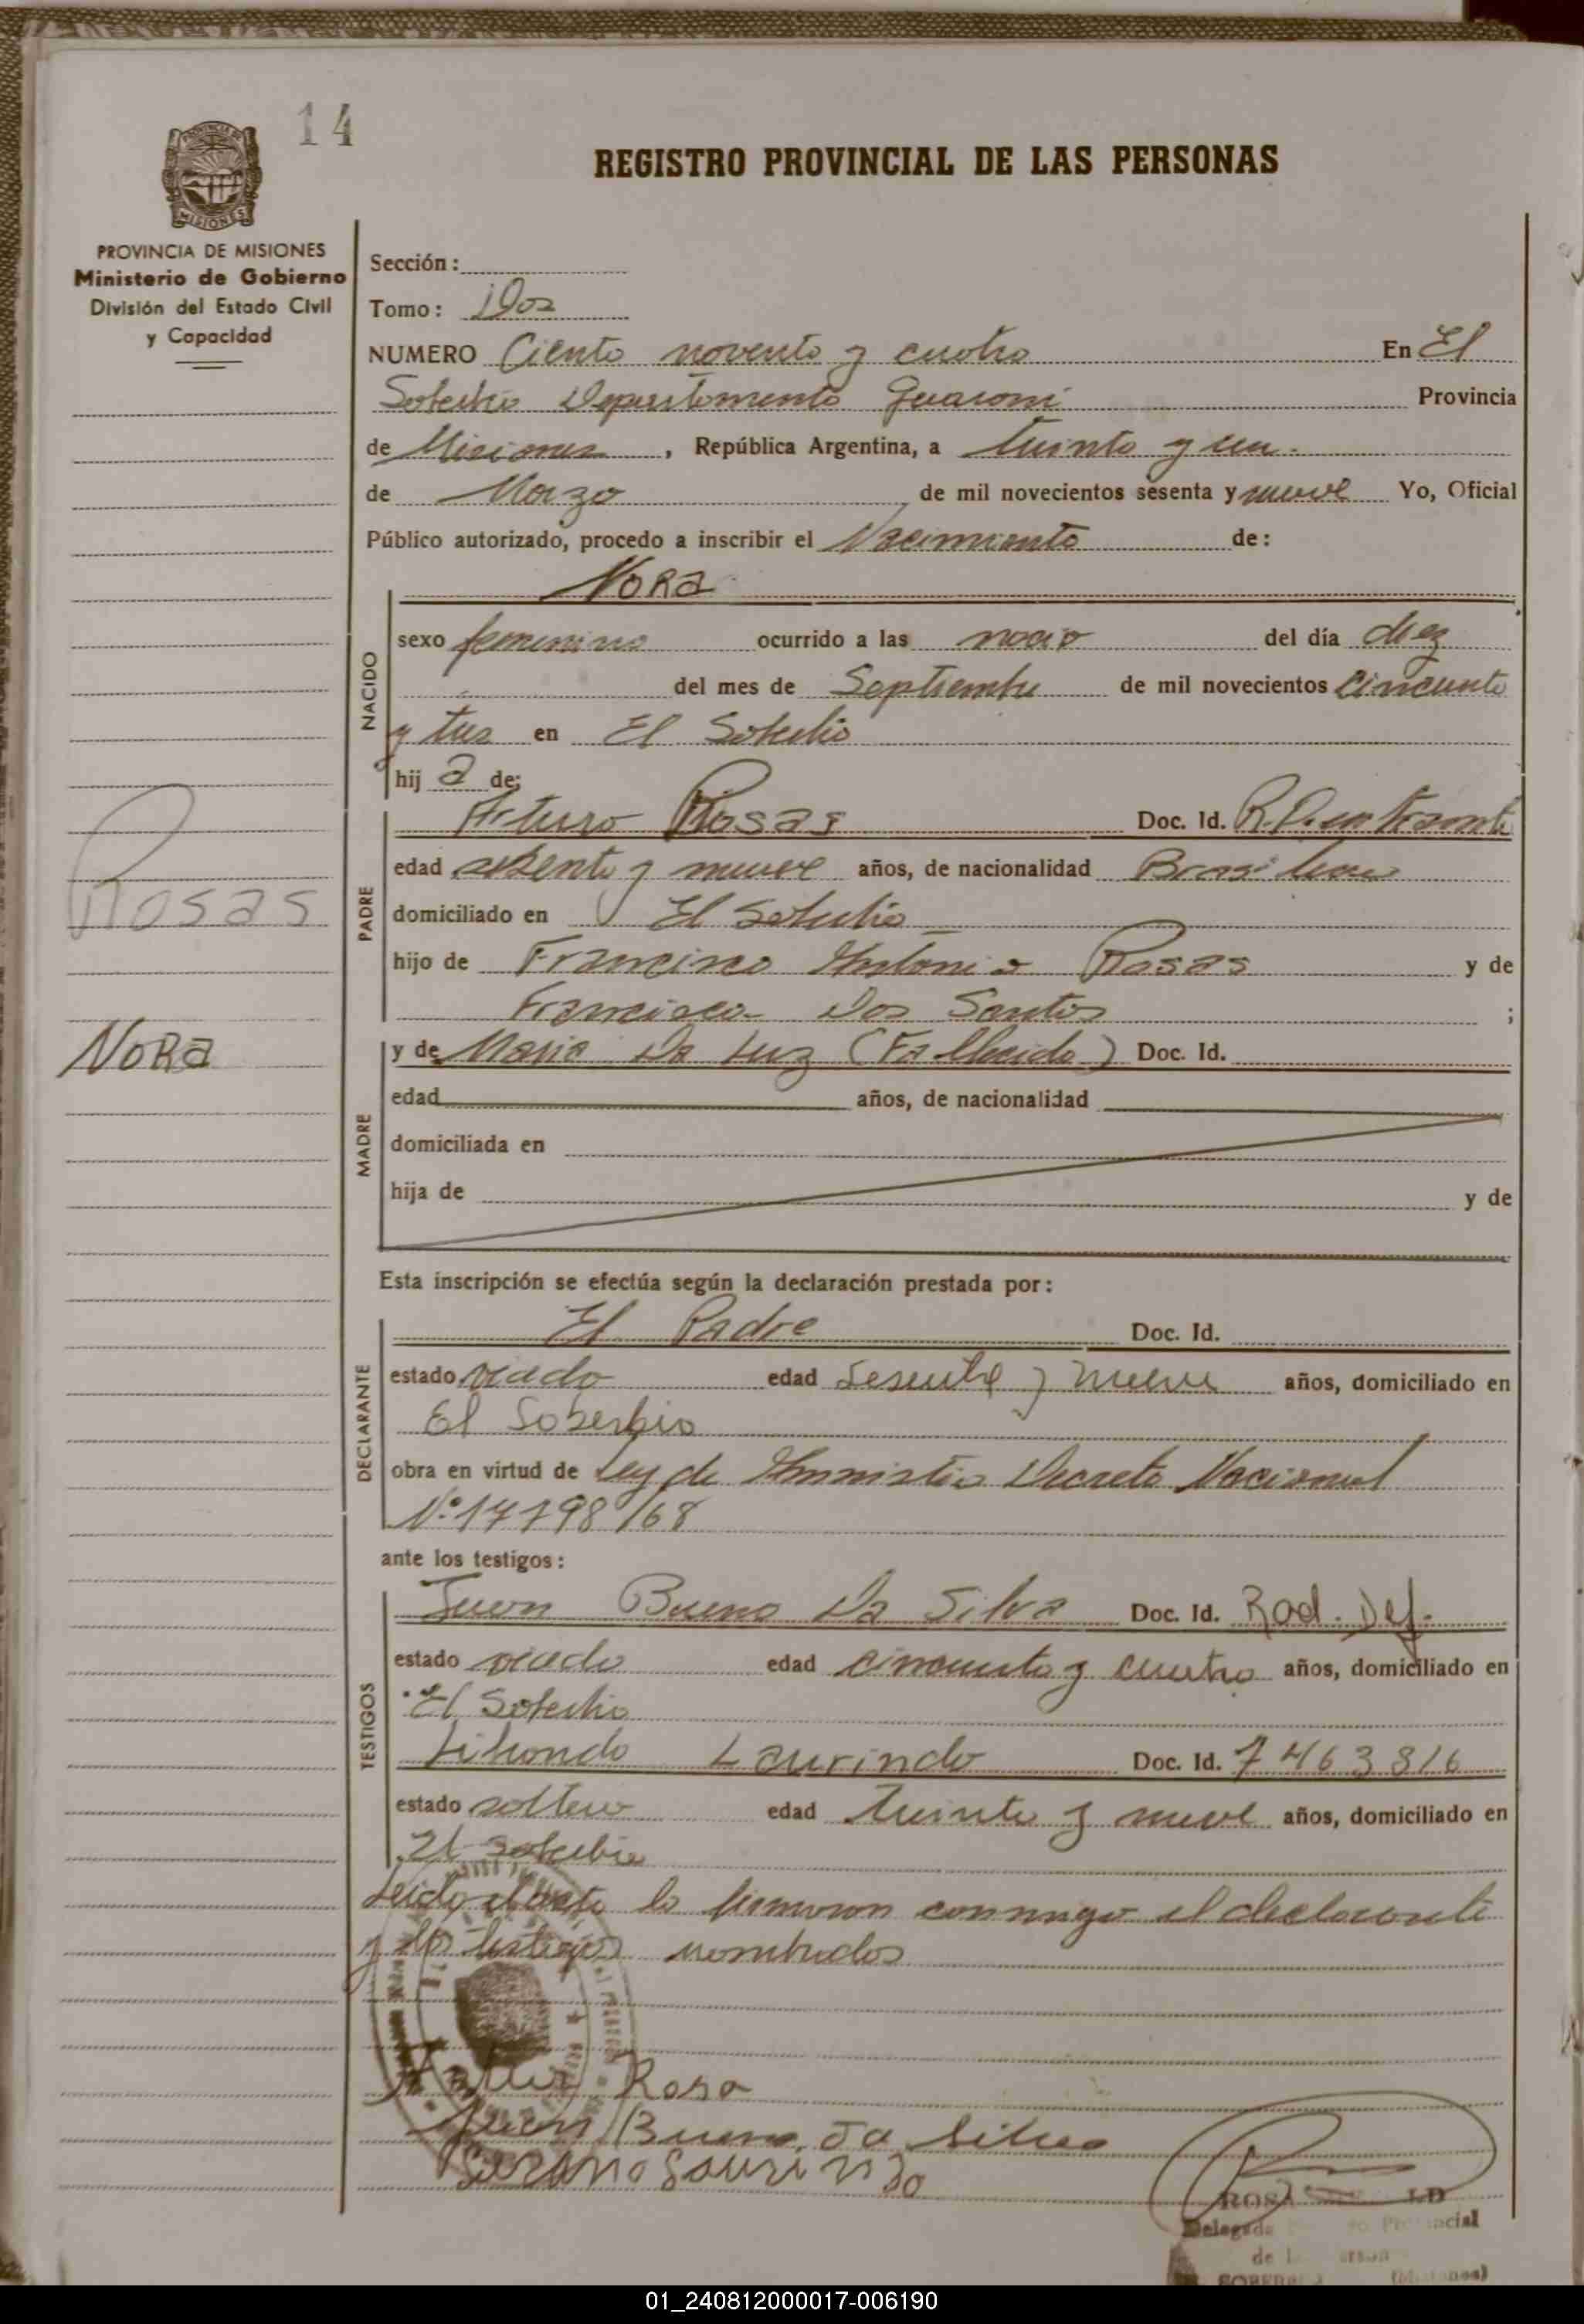 14
REGISTRO PROVINCIAL DE LAS PERSONAS
PROVINCIA DE MISIONES
Ministerio de Gobierno
División del Estado Civil
y Capacidad
Sección:
Tomo: Dos
NUMERO Ciento noventa y cuatro En El
Soberbio Departamento Guarani Provincia
de Misiones, República Argentina, a treinta y un.
de Marzo de mil novecientos sesenta y nueve Yo, Oficial
Público autorizado, procedo a inscribir el Nacimiento de:
NORA
NACIDO
sexo femenino ocurrido a las del día diez
del mes de Septiembre de mil novecientos cincuenta
y tres en El Soberbio
hij a de:
Rosas
Nora
PADRE
Arturo Rosas Doc. Id.
edad sesenta y nueve años, de nacionalidad Brasilero
domiciliado en El Soberbio
hijo de Francisco Antonio Rosas y de
Francisca Dos Santos ;
MADRE
y de Maria Da Luz (Fallecida) Doc. Id.
edad años, de nacionalidad
domiciliada en
hija de y de
Esta inscripción se efectúa según la declaración prestada por:
DECLARANTE
El Padre Doc. Id.
estado viudo edad sesenta y nueve años, domiciliado en
El Soberbio
obra en virtud de Ley de Amnistia Decreto Nacional
Nº 17798/68
ante los testigos:
TESTIGOS
Juan Bueno Da Silva Doc. Id. Rad. Def.
estado viudo edad cincuenta y cuatro años, domiciliado en
El Soberbio
Laurindo Doc. Id. 7463816
estado soltero edad treinta y nueve años, domiciliado en
El Soberbio
Leido el acta la firmaron conmigo el declarante
y los testigos nombrados
Rosa
Juan Bueno Da Silva
Laurindo
Delegada
01_240812000017-006190